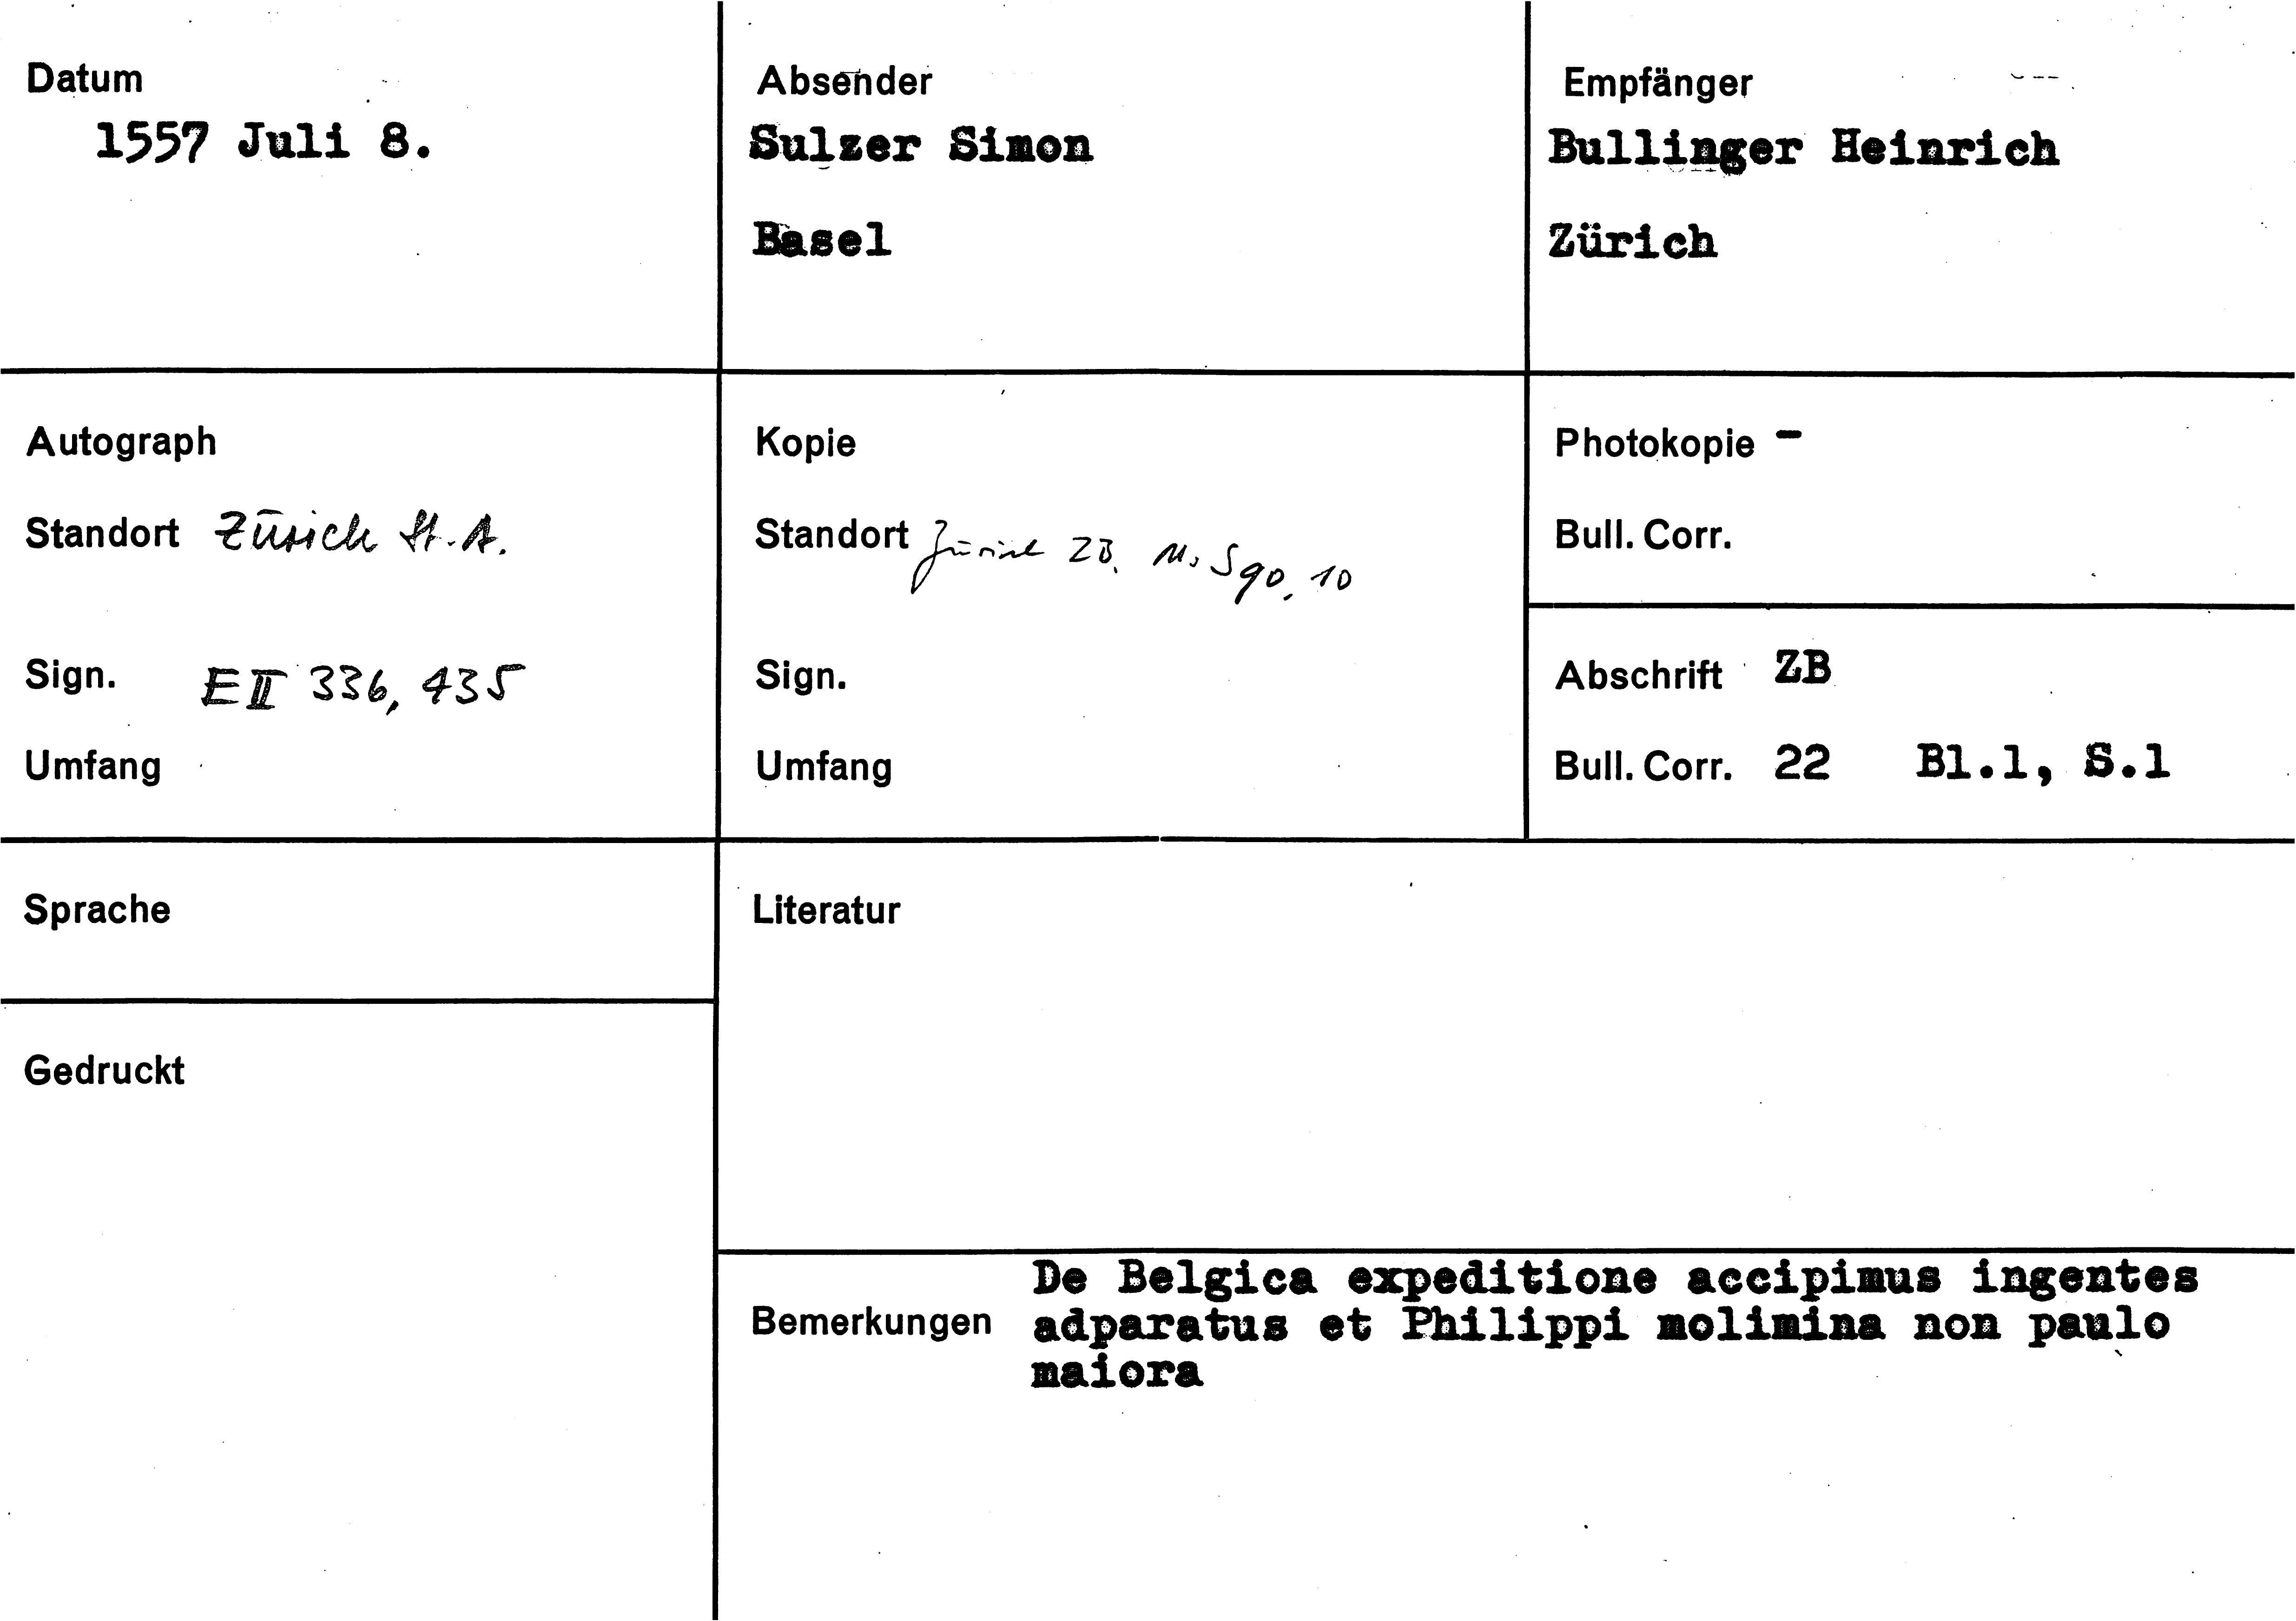 Datum
1557 Juli 8.
Absender
Sulzer Simon
Basel
Empfänger
Bullinger Heinrich
Zürich
Autograph
Standort Zürich St. A.
Sign. E II 336, 435
Umfang
Kopie
Standort Zürich ZB. Ms S 90, 10
Sign.
Umfang
Photokopie -
Bull. Corr.
Abschrift ZB
Bull. Corr. 22 Bl.1, S.1
Sprache
Gedruckt
Literatur
Bemerkungen
De Belgica expeditione accipimus ingentes
adparatus et Philippi molimina non paulo
maiora